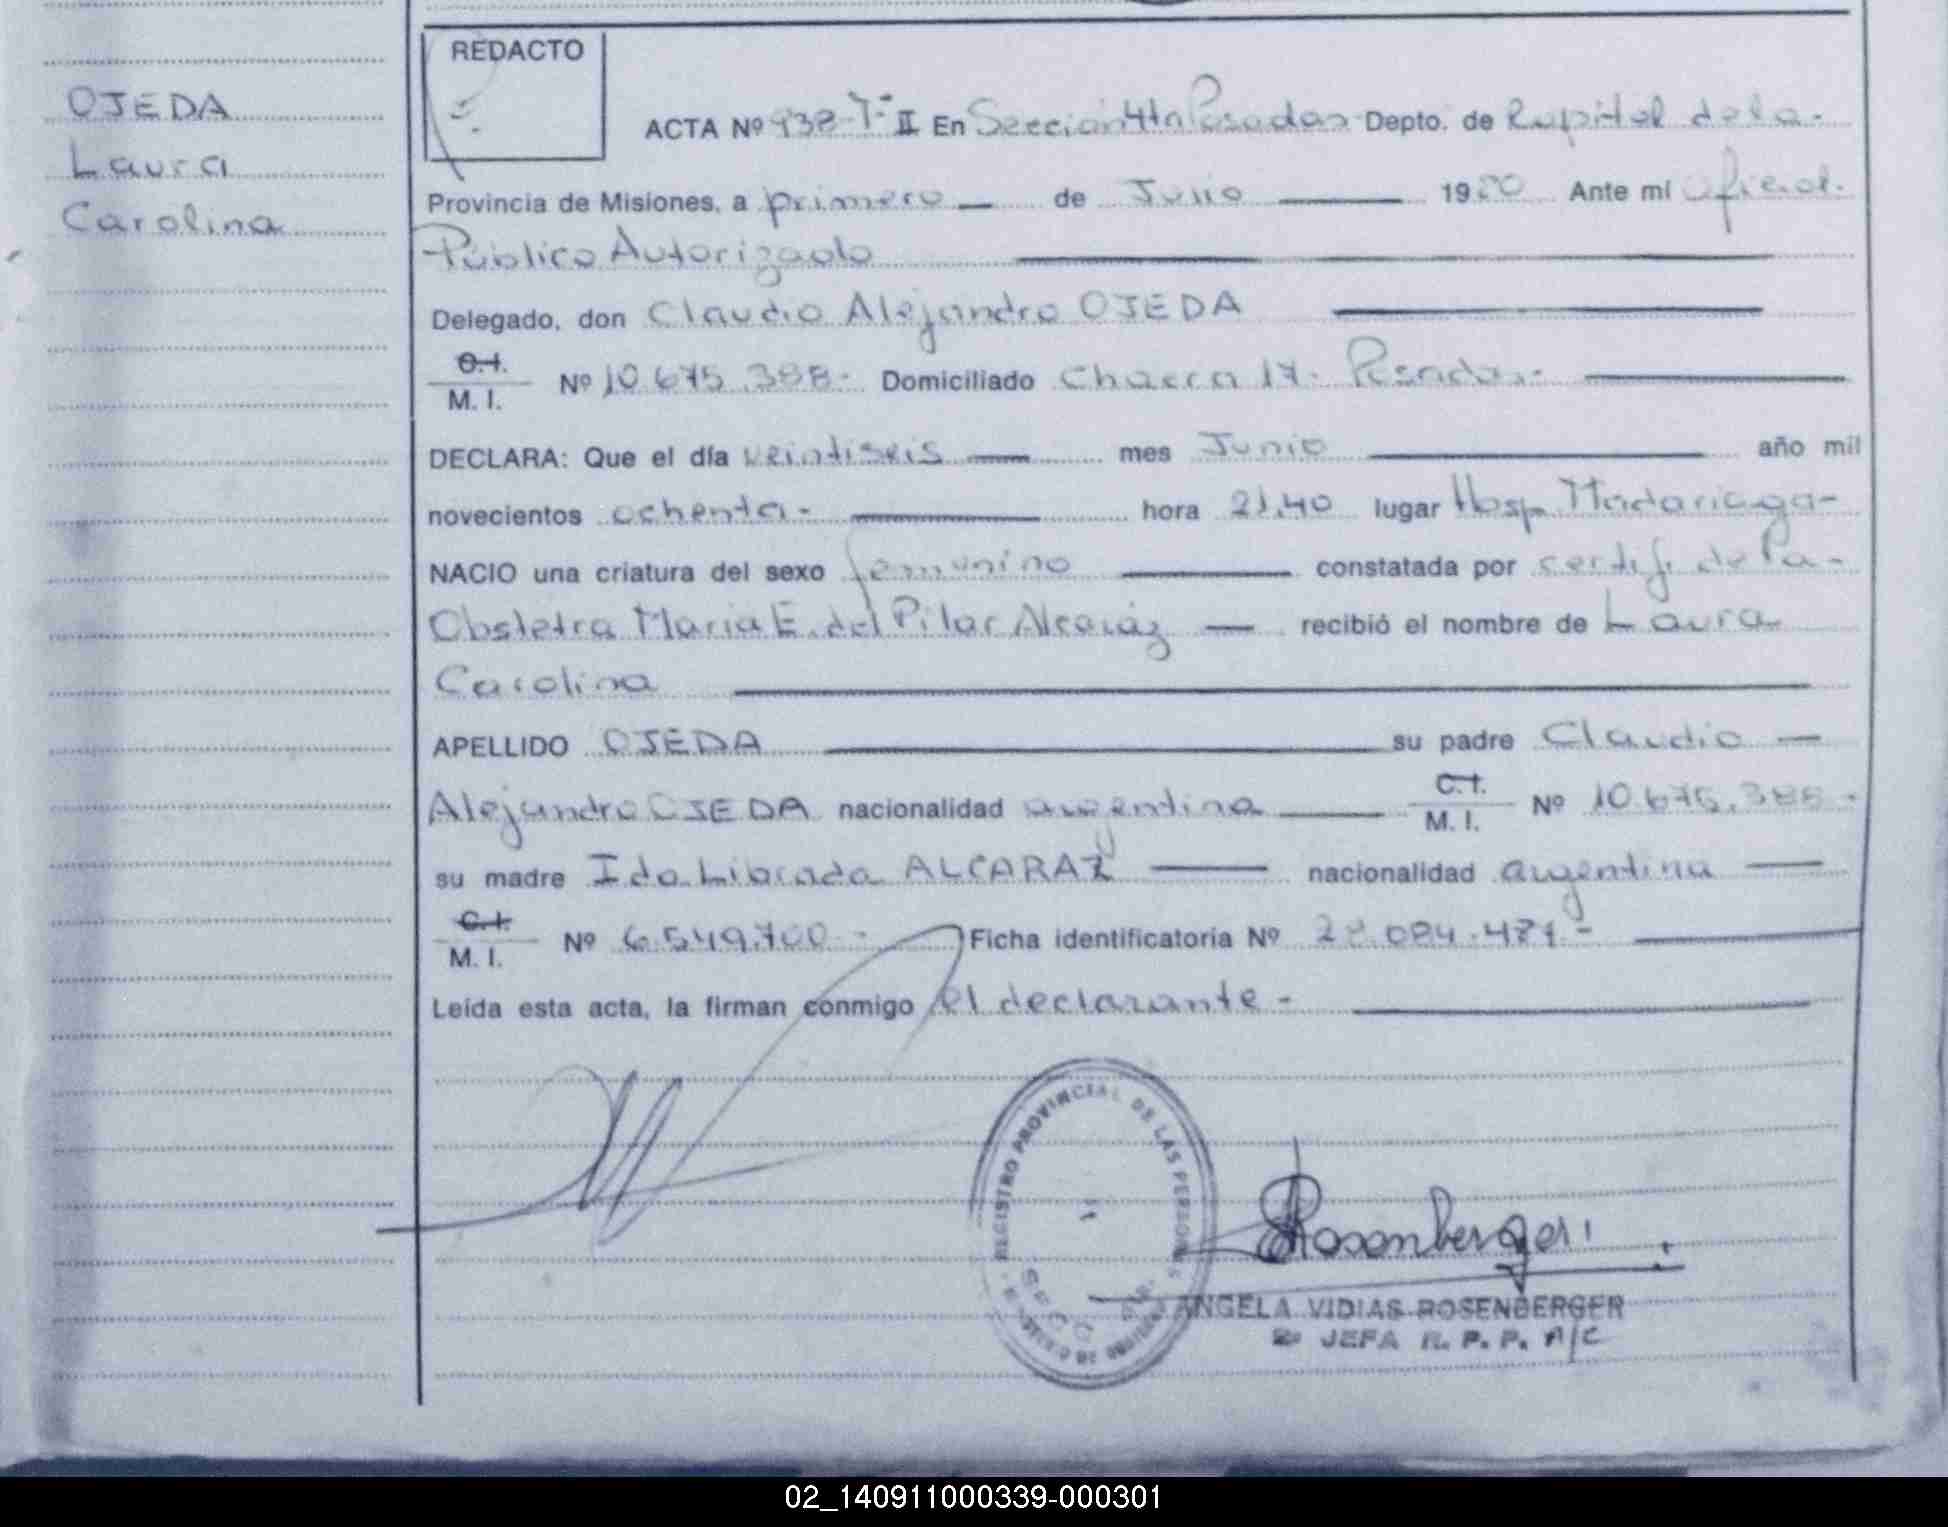 REDACTO
OJEDA
Laura
Carolina
ACTA Nº 938-Tº II En Sección 4ta Posadas Depto. de Capital de la
Provincia de Misiones, a primero de Julio 1980 Ante mí Oficial
Público Autorizado
Delegado, don Claudio Alejandro OJEDA
C.I.
M. I. Nº 10.675.388- Domiciliado Chacra 17- Posadas.-
DECLARA: Que el día veintiseis mes Junio año mil
novecientos ochenta- hora 21,40 lugar Hosp Madariaga-
NACIO una criatura del sexo femenino constatada por certif. de la-
Obstetra Maria E. del Pilar Alcaráz recibió el nombre de Laura
Carolina
APELLIDO OJEDA su padre Claudio
Alejandro OJEDA nacionalidad argentina C.I.
M. I. Nº 10.675.388-
su madre Ida Librada ALCARAZ nacionalidad argentina
C.I.
M. I. Nº 6.549.700- Ficha identificatoria Nº 28.084.471-
Leída esta acta, la firman conmigo el declarante-
REGISTRO PROVINCIAL DE LAS PERSONAS
Rosenberger
ANGELA VIDIAS ROSENBERGER
JEFA R. P. P. A/C
02_140911000339-000301